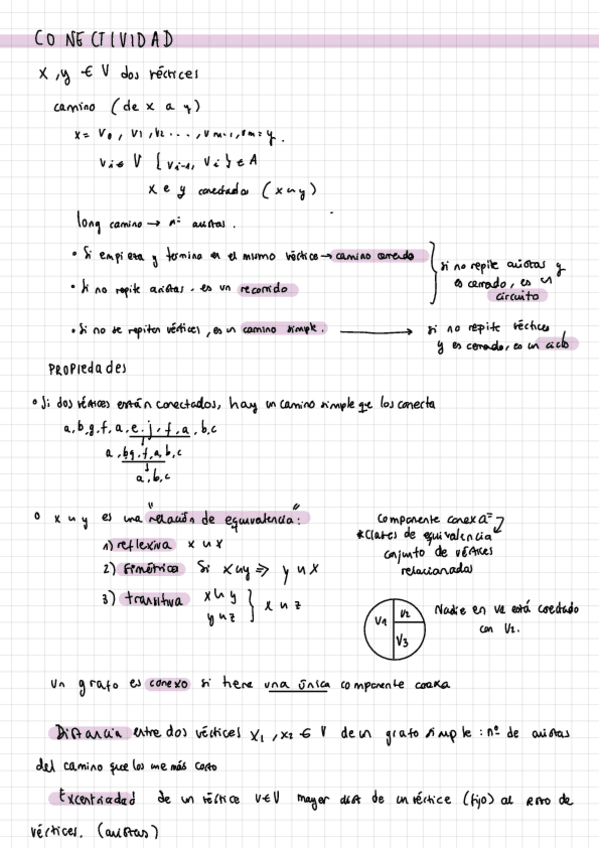 CONECTIVIDAD
x, y ∈ V dos vértices
camino (de x a y)
x = v0, v1, v2 ..., vm-1, vm = y.
vi ∈ V {vi-1, vi} ∈ A
x e y conectados (x ~ y)
long camino → nº aristas.
• Si empieza y termina en el mismo vértice → camino cerrado
• Si no repite aristas. es un recorrido
si no repite aristas y
es cerrado, es un
circuito
• Si no se repiten vértices, es un camino simple. → si no repite vértices
y es cerrado, es un ciclo
PROPIEDADES
• Si dos vértices están conectados, hay un camino simple que los conecta
a, b, g, f, a, e, j, f, a, b, c
a, b g, f, a, b, c
a, b, c
• x ~ y es una "relación de equivalencia":
1) reflexiva x ~ x
2) simétrica Si x ~ y ⇒ y ~ x
3) transitiva x ~ y
y ~ z } x ~ z
componente conexa =
*Clases de equivalencia
conjunto de vértices
relacionadas
V1 V2
V3
Nadie en V1 está conectado
con V2.
Un grafo es conexo si tiene una única componente conexa
Distancia entre dos vértices x1, x2 ∈ V de un grafo simple: nº de aristas
del camino que los une más corto
Excentricidad de un vértice v ∈ V mayor dist de un vértice (fijo) al resto de
vértices. (aristas)